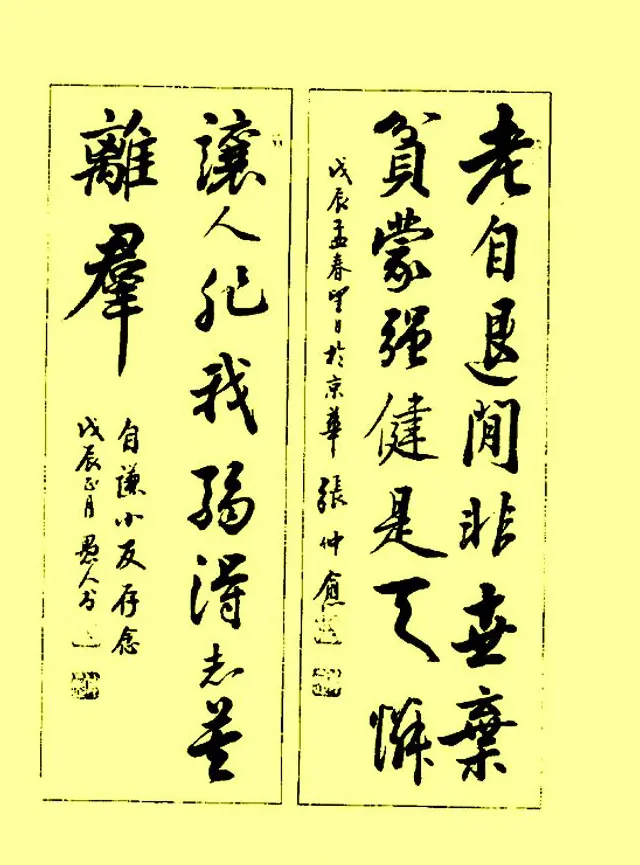 老自退閒非世棄
貧蒙强健是天憐
戊辰孟春望日於京華 張仲愈
讓人非我弱得志莫
離羣
自謙小友存念
戊辰正月愚人书